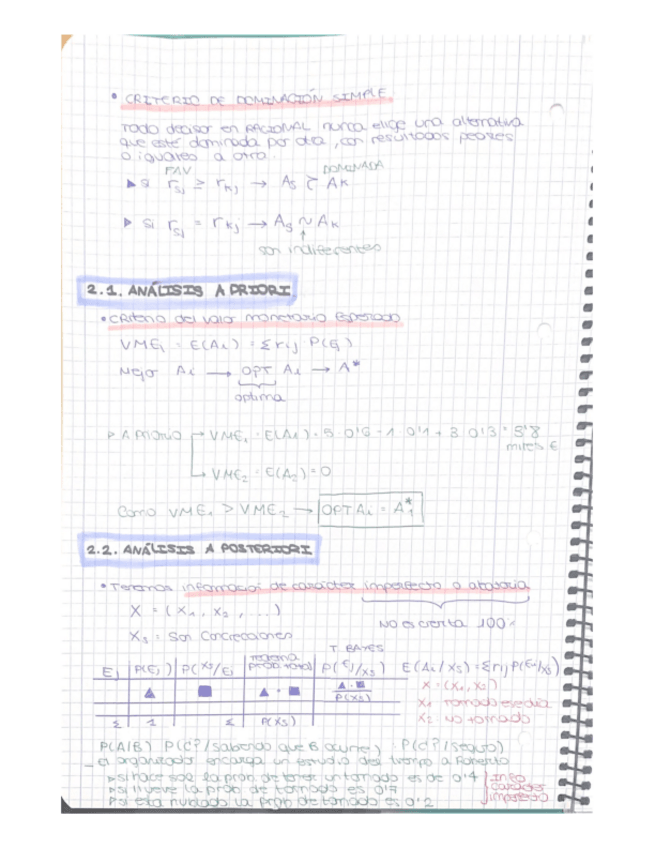 • CRITERIO DE DOMINACIÓN SIMPLE
Todo decisor en RACIONAL nunca elige una alternativa
que esté dominada por otra, con resultados peores
o iguales a otra.
FAV DOMINADA
▶ Si rsj ≥ rkj → As ≻ Ak
▶ Si rsj = rkj → As ~ Ak
son indiferentes
2.1. ANÁLISIS A PRIORI
• Criterio del valor monetario esperado
VMEi = E(Ai) = Σ rij · P(Ej)
Mejor Ai → OPT Ai → A*
optima
▶ A PRIORI → VME1 = E(A1) = 5 · 0'6 - 1 · 0'1 + 3 · 0'3 = 3'8
miles €
→ VME2 = E(A2) = 0
Como VME1 > VME2 → OPT Ai = A1*
2.2. ANÁLISIS A POSTERIORI
• Tenemos información de carácter imperfecto o aleatoria
X = (X1, X2, ...) NO es cierta 100%
Xs = Son Concreciones
T. BAYES
Ej P(Ej) P(Xs/Ej) teorema prob. total P(Ej/Xs) E(Ai/Xs) = Σ rij P(Ej/Xs)
▲ ■ ▲ · ■ ▲ · ■ / P(Xs) X = (X1, X2)
X1 tornado ese día
Σ 1 Σ P(Xs) X2 no tornado
P(A/B) P(d?/sabiendo que B ocurre) P(d?/seguro)
_ El organizador encarga un estudio del tiempo a
▶ si hace sol la prob. de tener un tornado es de 0'4 info
▶ si llueve la prob de tornado es 0'7 carácter
▶ si está nublado la prob de tornado es 0'2 imperfecto